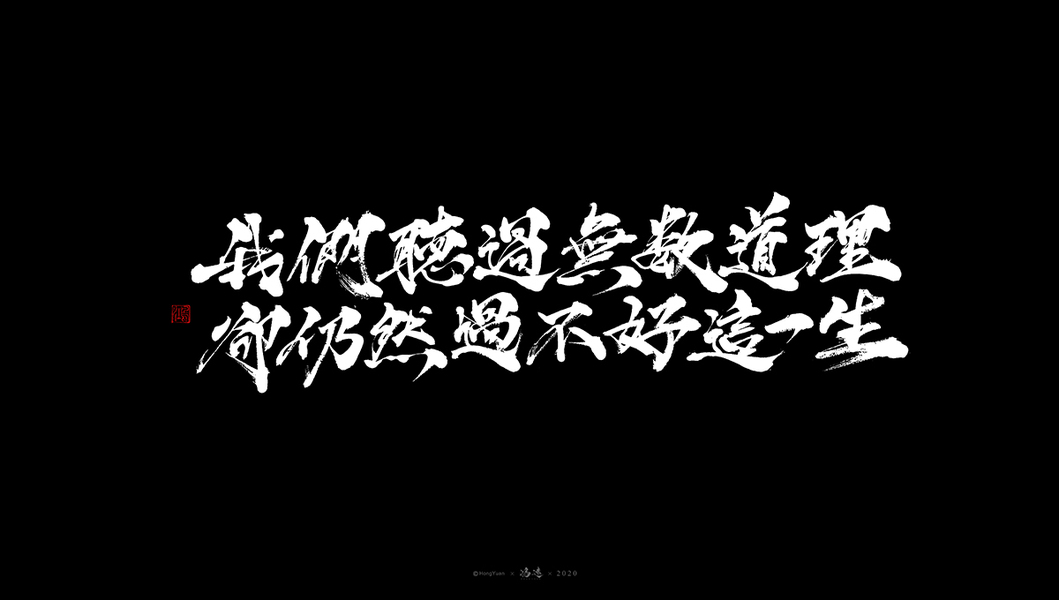 我們聽過無數道理
卻仍然過不好這一生
©HongYuen × × 2020